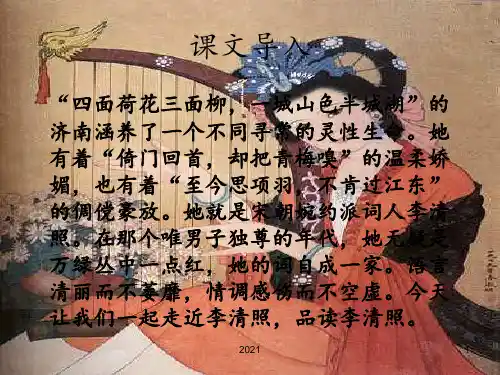 课文导入
“四面荷花三面柳，一城山色半城湖”的
济南涵养了一个不同寻常的灵性生命。她
有着“倚门回首，却把青梅嗅”的温柔娇
媚，也有着“至今思项羽，不肯过江东”
的倜傥豪放。她就是宋朝婉约派词人李清
照。在那个唯男子独尊的年代，她无疑是
万绿丛中一点红，她的词自成一家。语言
清丽而不萎靡，情调感伤而不空虚。今天
让我们一起走近李清照，品读李清照。
2021